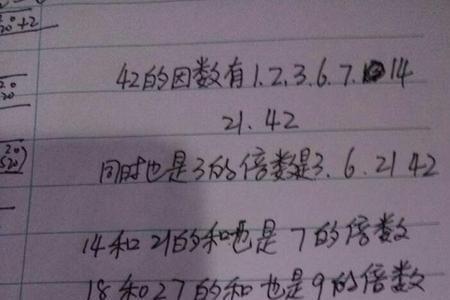 20+2
20
42的因数有1.2.3.6.7.14
21.42
20
520)
同时也是3的倍数是3.6.21 42
14和21的和也是7的倍数
18和27的和也是9的倍数